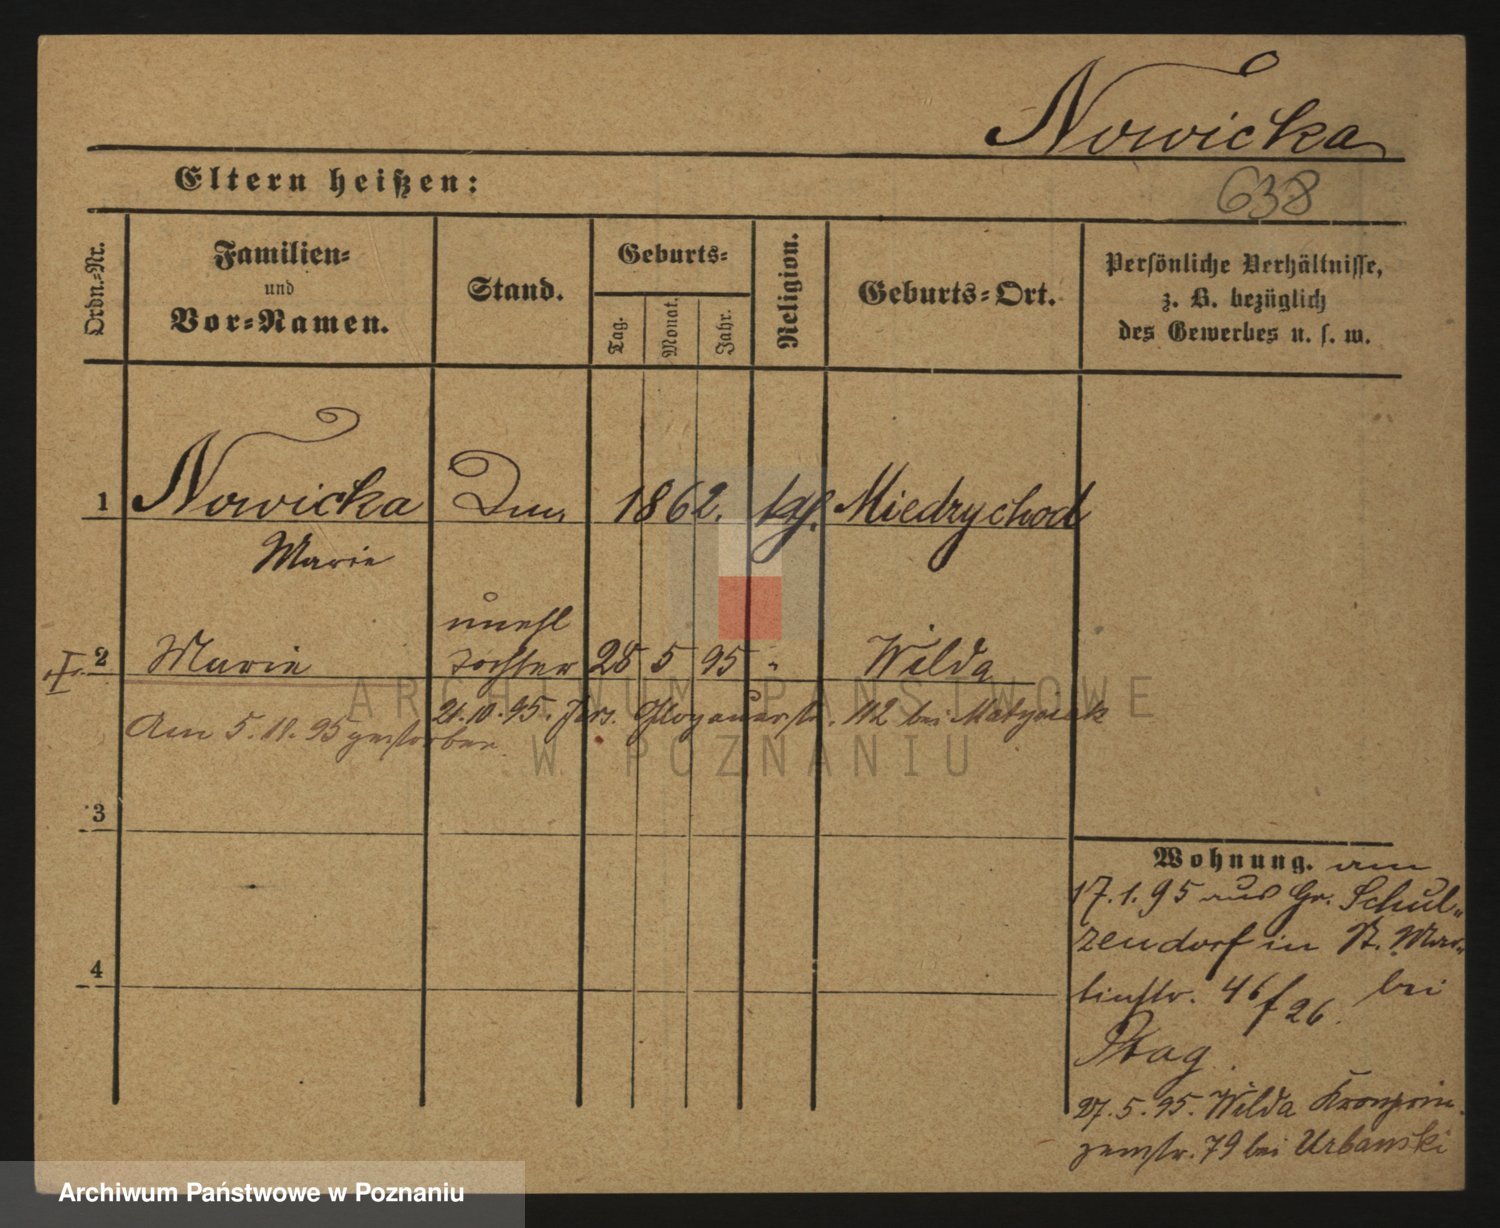 Nowicka
Eltern heißen:
638
Ordn.-Nr.
Familien-
und
Vor-Namen.
Stand.
Geburts-
Tag.
Monat.
Jahr.
Religion.
Geburts-Ort.
Persönliche Verhältnisse,
z. B. bezüglich
des Gewerbes u. s. w.
1 Nowicka 1862. Miedzychod
Marie
unehl
2 Marie Tochter 28 5 95 " Wilda
21.10.95. Glogauerstr. 112 bei Matyciak
Am 5.11.95 gestorben
3
4
Wohnung. am
17.1.95 aus Gr. Schul-
zendorf in St. Mar-
tinstr. 46 f 26. bei
Ptag.
27.5.95. Wilda Kronprin-
zenstr. 79 bei Urbanski
ARCHIWUM PAŃSTWOWE
W POZNANIU
Archiwum Państwowe w Poznaniu